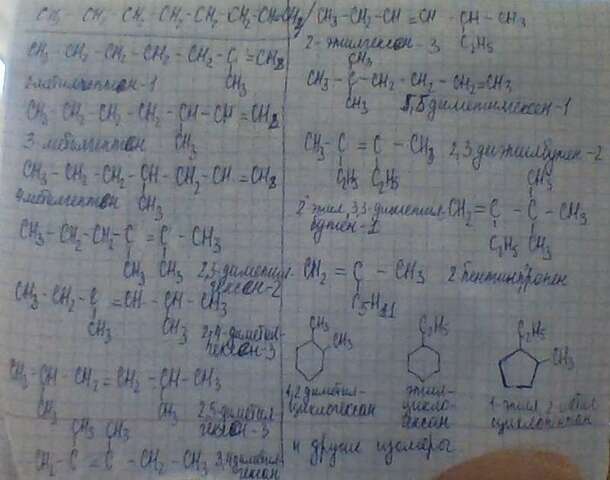 CH3 - CH2 - CH2 - CH2 - CH2 - CH2 - CH=CH2
CH3 - CH2 - CH2 - CH2 - CH2 - C =CH2
CH3
2-метилгептен-1
CH3 - CH2 - CH2 - CH2 - CH - CH =CH2
3-метилгептен CH3
CH3 - CH2 - CH2 - CH - CH2 - CH =CH2
4метилгептен CH3
CH3 - CH2 - CH2 - C = C - CH3
CH3 CH3 2,3-диметил-
гексен-2
CH3 - CH2 - C =CH - CH - CH3
CH3 CH3 2,4-диметил-
гексен-3
CH3 - CH - CH2 = CH2 - CH - CH3
CH3 CH3 2,5-диметил-
гексен-3
CH3 CH3
CH3 - C = C - CH2 - CH3 3,4диметил-
гексен
CH3 - CH2 - CH = CH - CH - CH3
2-этилгексен-3 C2H5
CH3
CH3 - C - CH2 - CH2 - CH2=CH3
CH3 5,5диметилгексен-1
CH3 - C = C - CH3 2,3диэтилбутен-2
C2H5 C2H5
CH3
2 этил,3,3-диметил- CH2 = C - C - CH3
бутен-1 C2H5 CH3
CH2 = C - CH3 2пентилпропен
C5H11
CH3 C2H5 C2H5
CH3 CH3
1,2диметил- этил- 1-этил,2метил
циклогексан цикло- циклопентан
гексан
и другие изомеры